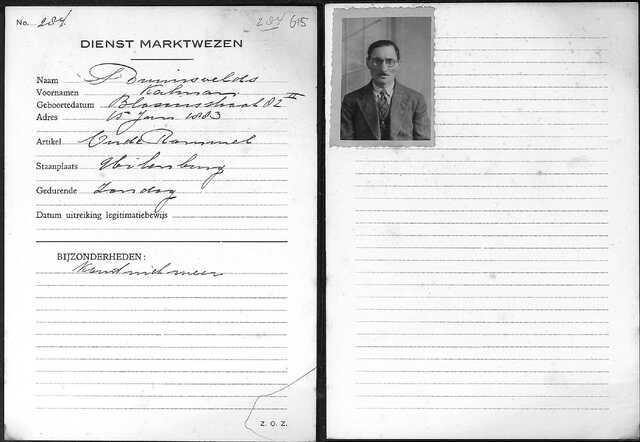 No. 284. 284 615
DIENST MARKTWEZEN
Naam Druinsvelds
Voornamen Kalman
Geboortedatum Blasiusstraat 82 II
Adres 15 Jan 1883
Artikel Oude Rommel
Staanplaats Uilenburg
Gedurende Zondag
Datum uitreiking legitimatiebewijs
BIJZONDERHEDEN:
Komt niet meer
Z. O. Z.